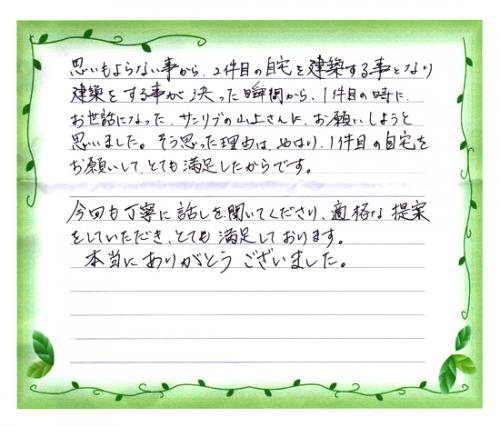 思いもよらない事から、2件目の自宅を建築する事となり
建築をする事が決った瞬間から、1件目の時に、
お世話になった、サンリブの山上さんに、お願いしようと
思いました。そう思った理由は、やはり、1件目の自宅を
お願いして、とても満足したからです。
今回も丁寧に話しを聞いてくださり、適格な提案
をしていただき、とても満足しております。
本当にありがとうございました。